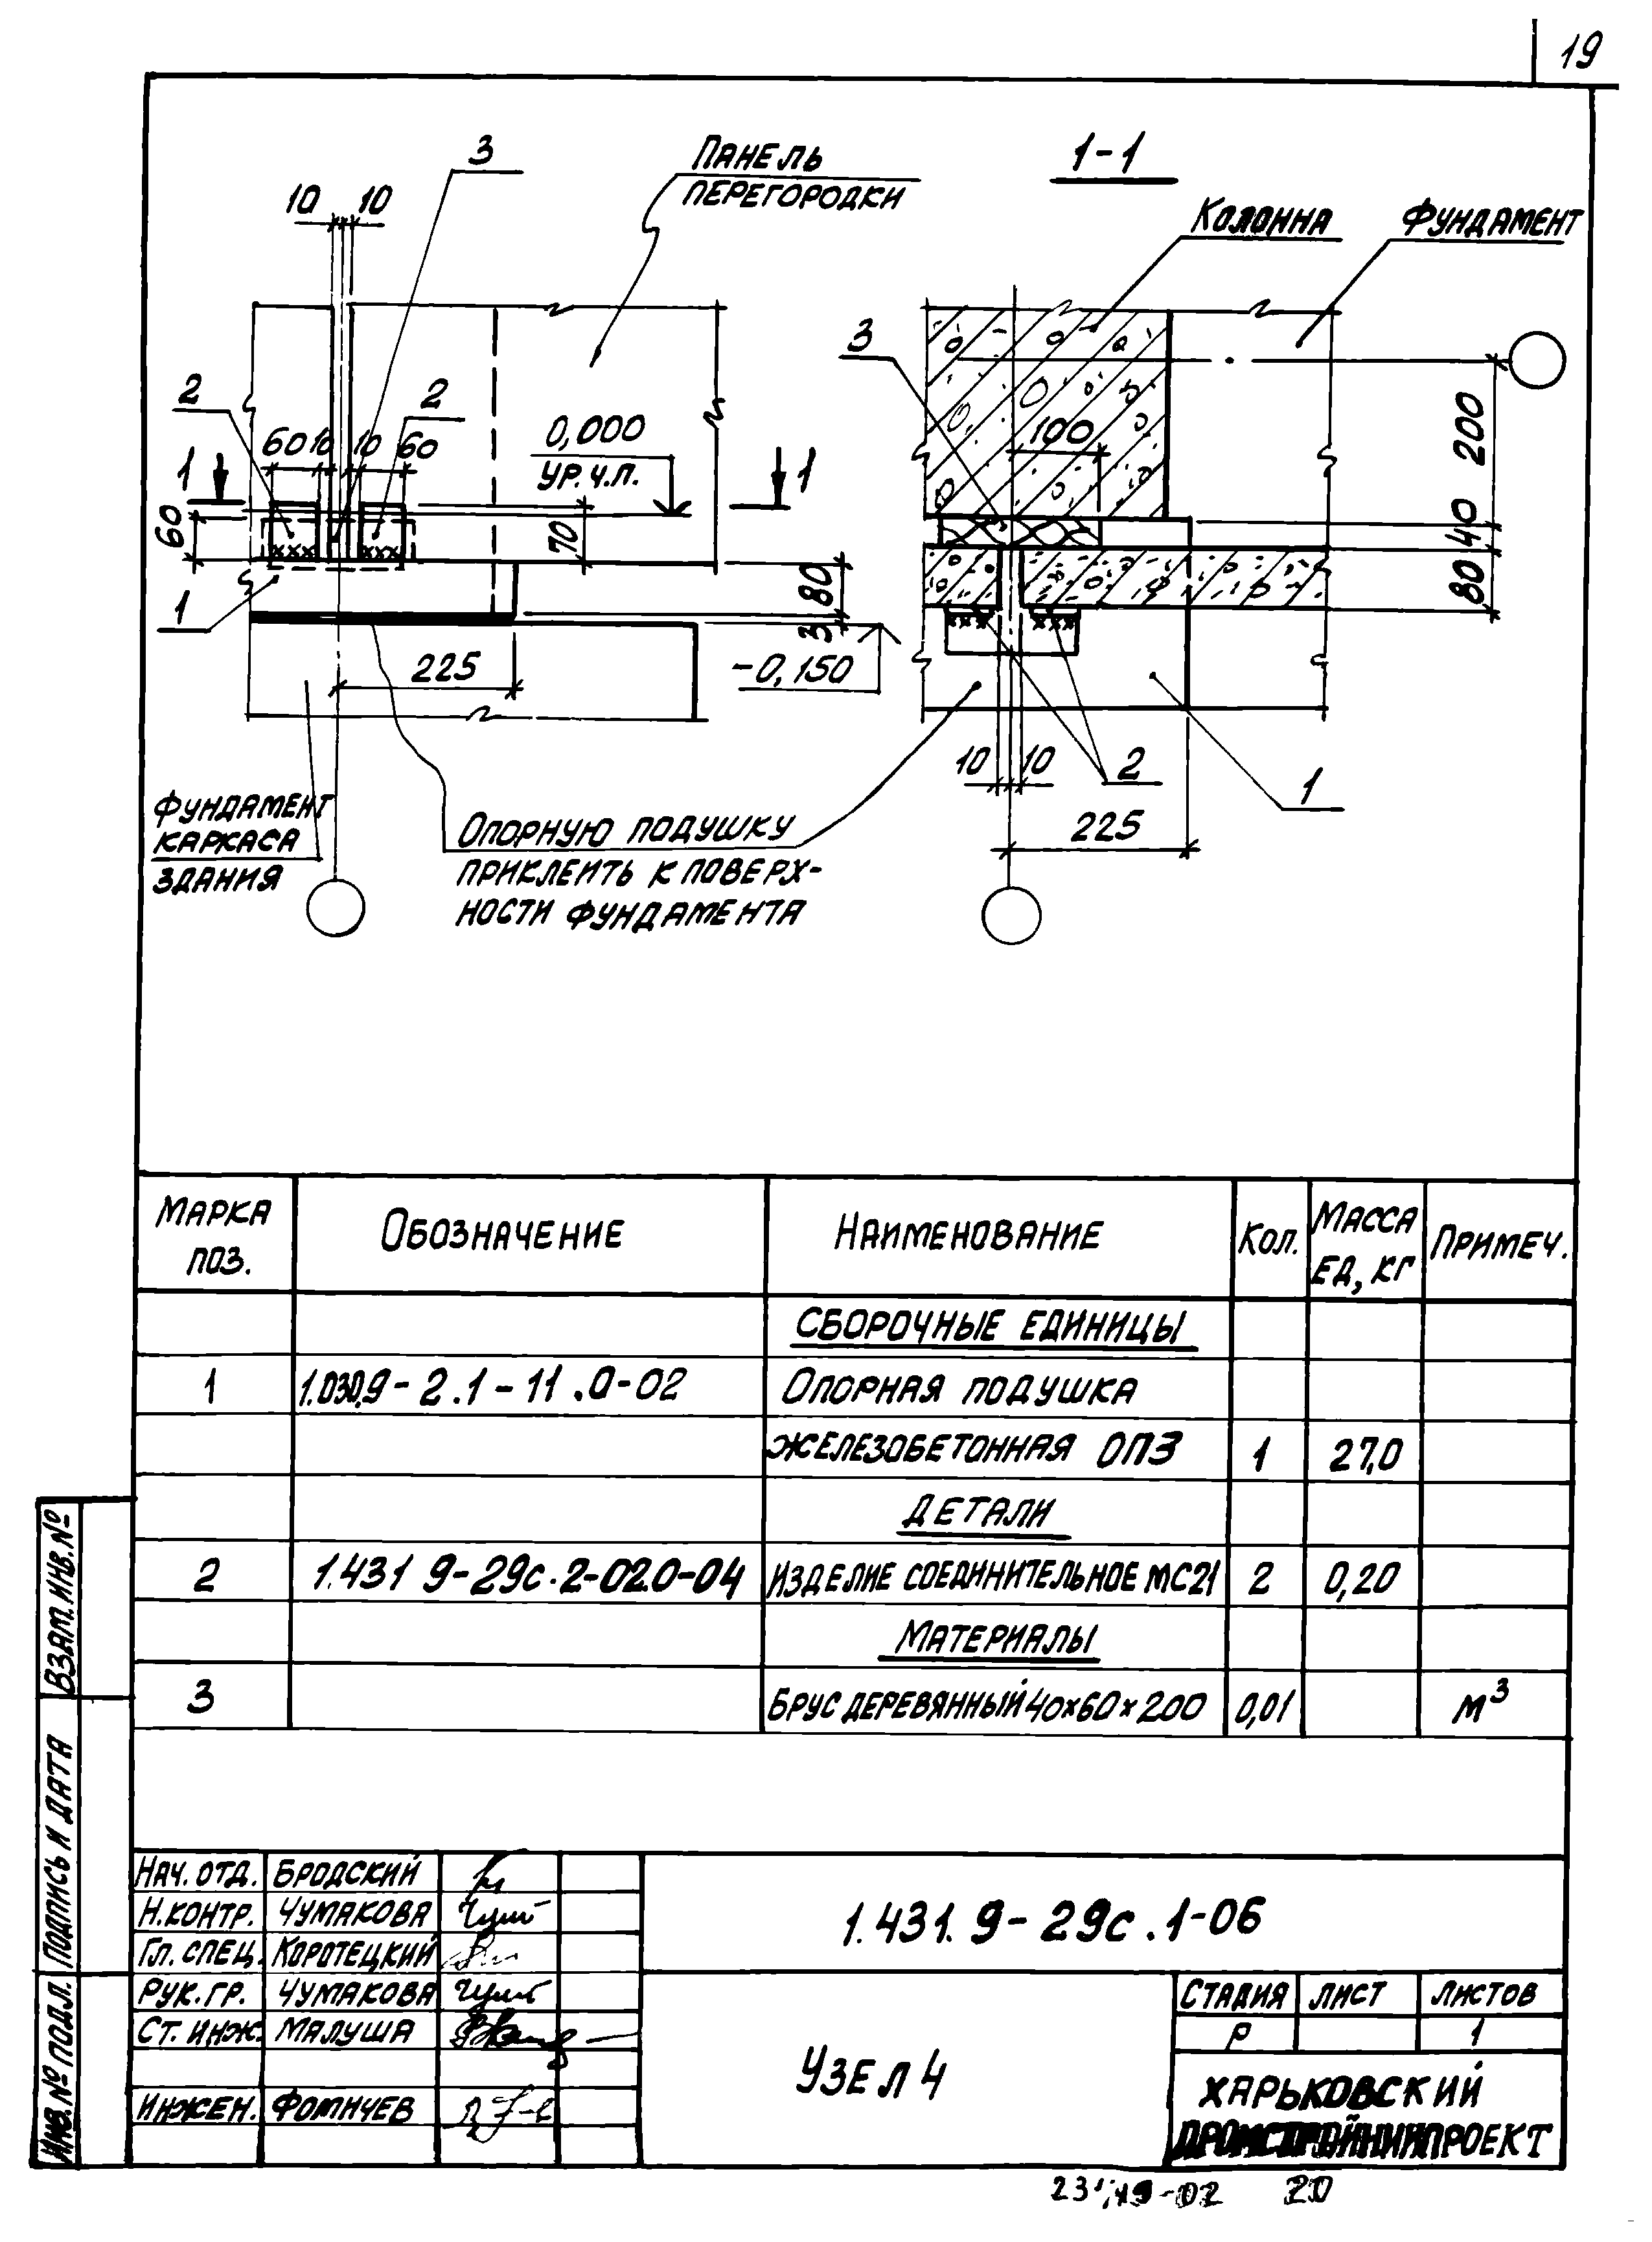 19
3
Панель
перегородки
1-1
10 10
Колонна
Фундамент
3
2
2
0,000
ур.ч.п.
60 10 10 60
100
200
1
1
60
70
40
80
80
3
1
225
-0,150
10 10
2
1
225
Фундамент
каркаса
здания
Опорную подушку
приклеить к поверх-
ности фундамента
Марка
поз.
Обозначение
Наименование
Кол.
Масса
ед, кг
Примеч.
Сборочные единицы
1 1.030.9-2.1-11.0-02 Опорная подушка
железобетонная ОП3 1 27,0
Детали
2 1.431 9-29с.2-02.0-04 Изделие соединительное МС21 2 0,20
Материалы
3 Брус деревянный 40х60х200 0,01 м³
Взам. инв. №
Подпись и дата
Инв. № подл.
Нач. отд. Бродский
Н. контр. Чумакова
Гл. спец. Коротецкий
Рук. гр. Чумакова
Ст. инж. Малуша
Инжен. Фомичев
1.431.9-29с.1-06
Узел 4
Стадия Лист Листов
Р 1
Харьковский
Промстройниипроект
20